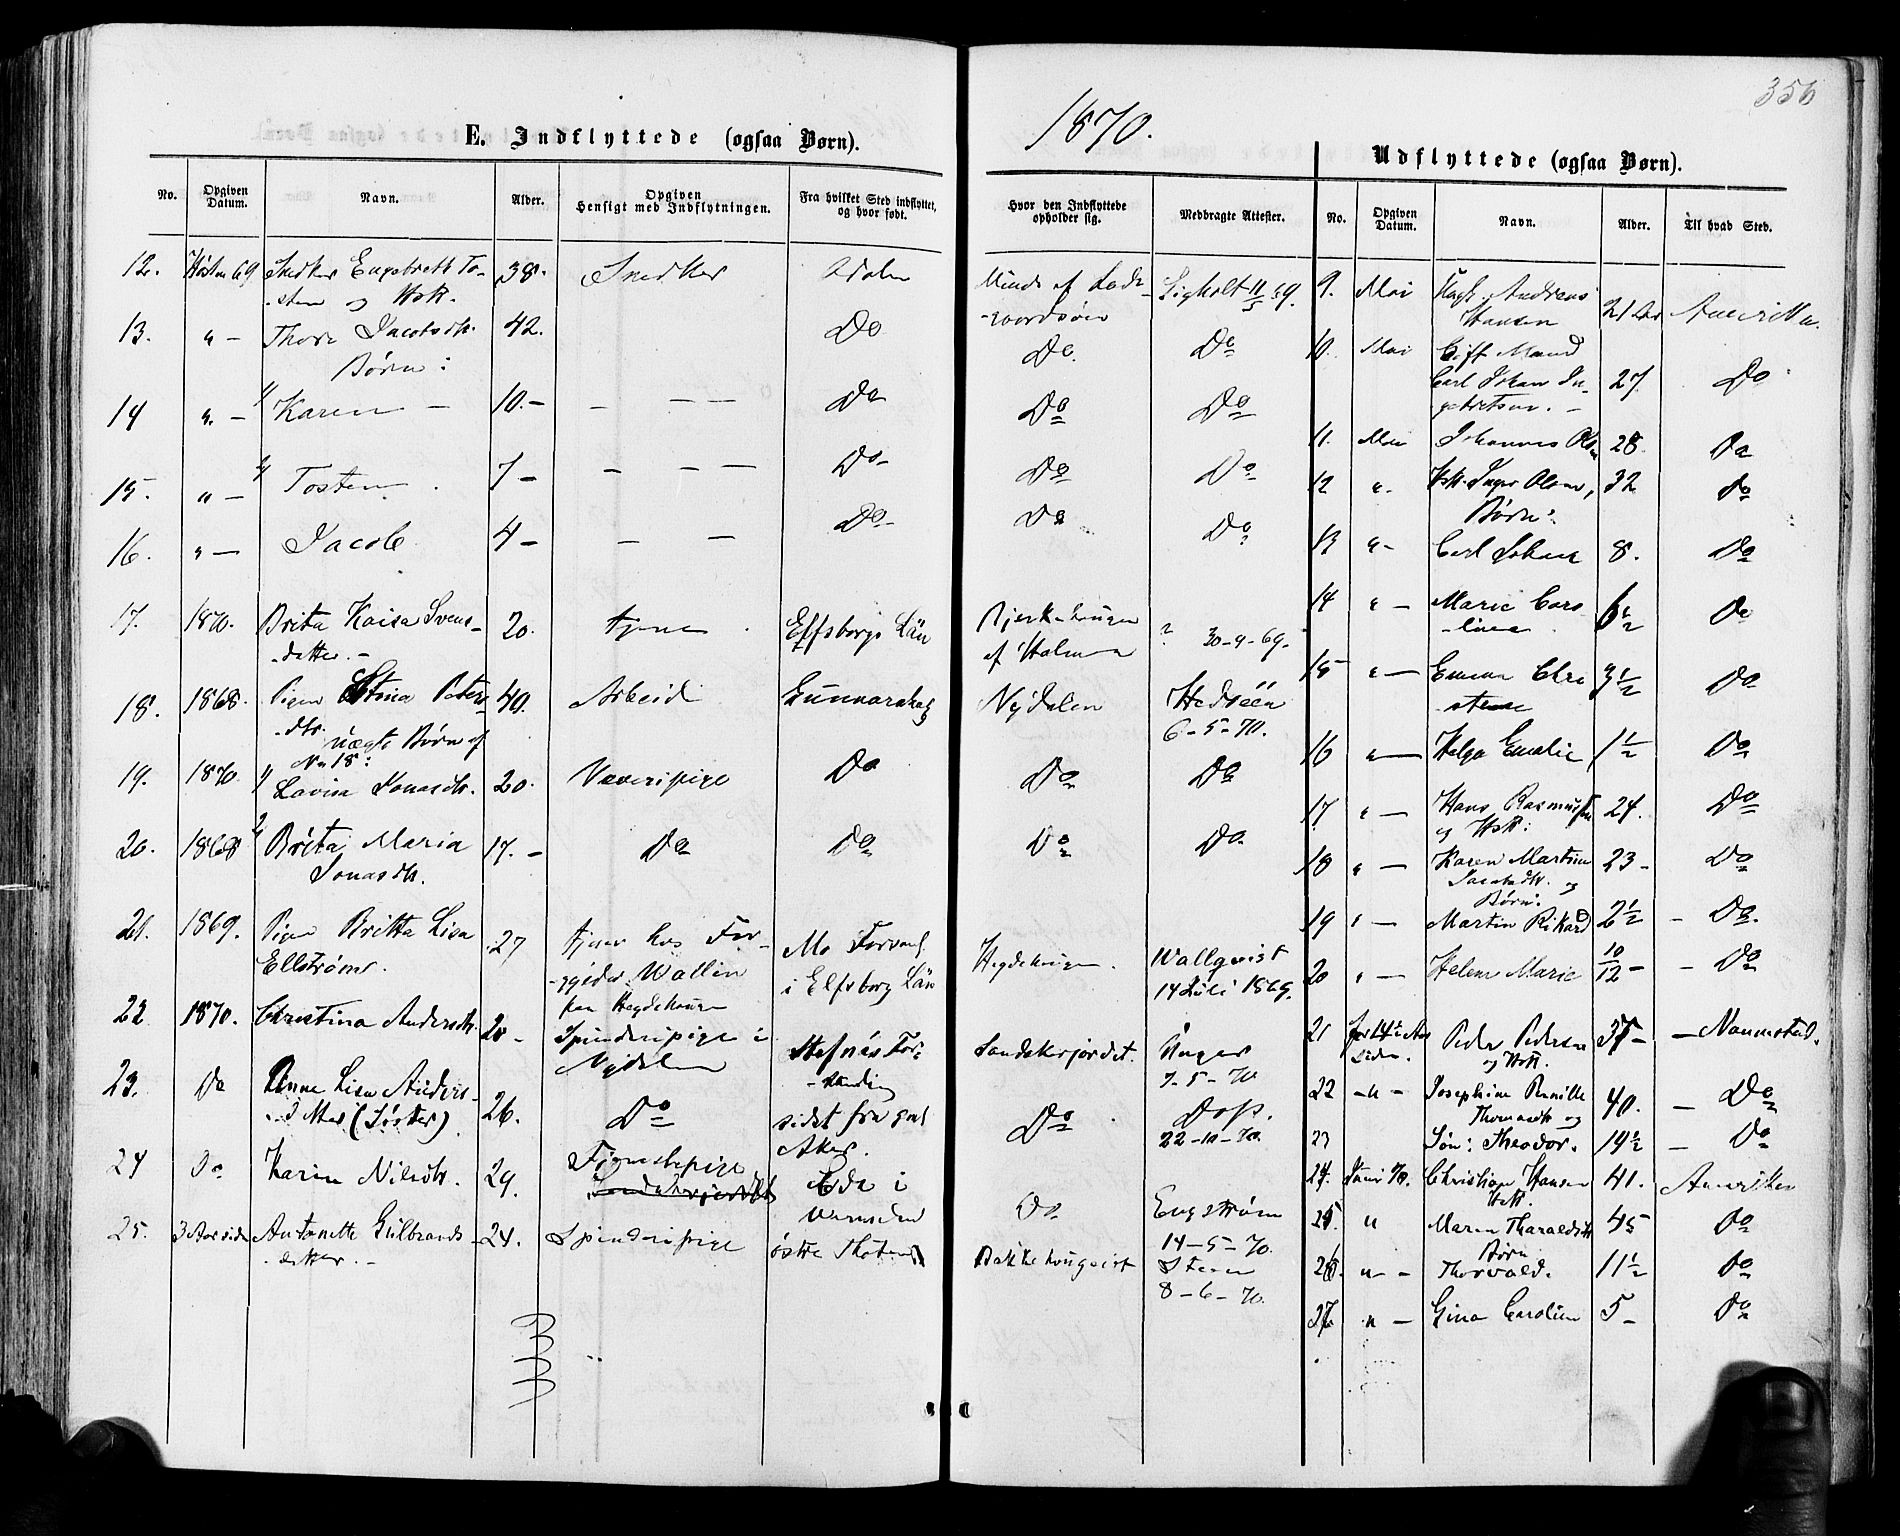 356
1870.
E. Indflyttede (ogsaa Børn).
Udflyttede (ogsaa Børn).
No. Opgiven Datum. Navn. Alder. Opgiven Hensigt med Indflytningen. Fra hvilket Sted indflyttet, og hvor født. Hvor den Indflyttede opholder sig. Medbragte Attester.
12. Høsten 69 Snedker Engebreth To-
-sten og Hstr. 38. Snedker Adalen
13. " — Thore Jacobsdtr. 42. Do Do Do
Børn:
14 " — 1/ Karen — 10.— — — — Do Do Do
15. " — 2/ Tosten 7 — — — — Do Do Do
16. " — Jacob 4 — — — Do Do Do
17. 1870. Brita Kaisa Svens-
-datter. 20. tjene Elfsborgs Län Bjerkehaugen
af Holmen ? 30-9-69.
18. 1868. Pigen Stina Peters-
dtr. 40. Arbeid Gunnarskog Nydalen Hedreen
6-5-70.
uægte Børn af
No 18:
19. 1870 1/ Lovisa Jonasdtr. 20. Væveripige Do Do Do
20. 1868 2/ Brita Maria
Jonasdtr. 17. — Do Do Do Do
21. 1869. Pigen Britta Lisa
Ellstrøm. 27 tjener hos For-
-gylder Wallin
paa Hegdehaugen Mo Forsaml.
i Elfsborg Län Hegdehaugen. Wallqvist
14 Juli 1869.
22 1870. Christina Andersdtr. 20 — Spinderipige i
Nydalen Landakerjordet. Unger
7-5-70
23. Do Anne Lisa Anders-
datter (Søster). 26. Do sidst fra
Aker. Do Do
22-10-70.
24 Do Karin Nilsdtr. 29. Tjenestepige Eda i
Vermeland Do Engstrøm
14-5-70.
25. 3 Aar siden Antonette Gulbrands-
datter. 24. Spinderipige østre Thoten Bakkehaugen Steen
8-6-70.
No. Opgiven Datum. Navn. Alder. Til hvad Sted.
9. Mai Ungk. Andreas
Hansen 21 Amerika.
10. Mai Gift Mand
Carl Johan In-
gebretsen. — 27 Do
11. Mai Johannes Olsen 28. Do
12 " Hstr. Inger Olsen, 32 Do
Børn:
13 " — Carl Johan 8. Do
14 " — Marie Caro-
-line 6 1/2 Do
15 " — Emma Chri
stense 3 1/2 Do
16 " — Helga Emelie 1 1/2 Do
17 " — Hans Rasmussen
og Hstr: 24. Do
18 " — Karen Martine
Jacobsdtr. og 23 — Do
Børn:
19 " — Martin Rikard 2 1/2 — Do.
20 " — Helene Marie 10/12 — — Do
21 for 14 1/2 Aar
siden. Peder Pedersen
og Hstr. 37 — — Namsstad.
22 — " — Josephine Pernille
Thomasdtr og 40. — Do
23 Søn: Theodor. 14 1/2 — Do
24. Juni 70. Christian Hansen
Hstr. 41. Amerika
25. " Maren Tharaldsdtr 45 Do
Børn
26. " — Thorvald. 11 1/2 Do
27 " — Gina Caroline 5 — Do